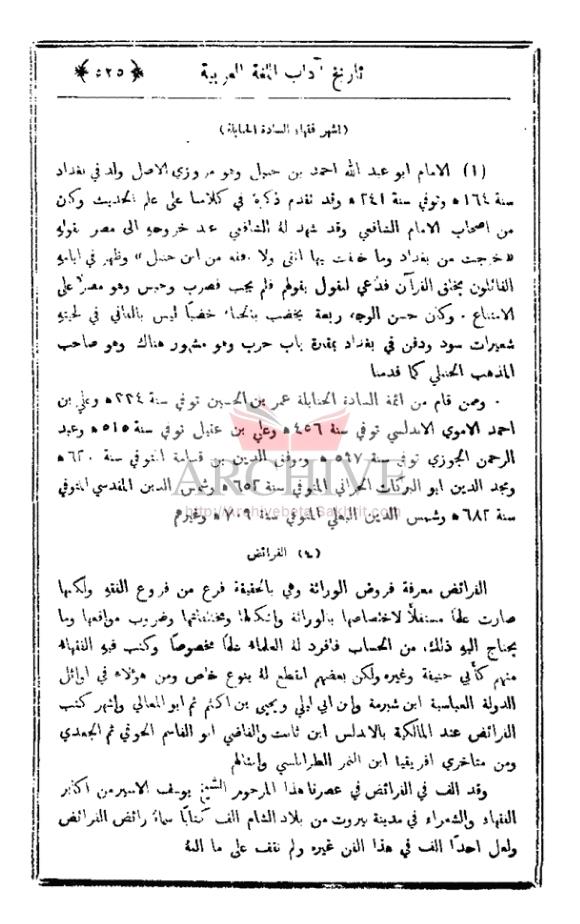 تاريخ آداب اللغة العربية ﴿ ٥٢٥ ﴾
(اشهر فقهاء السادة الحنابلة)
(١) الامام ابو عبد الله احمد بن حنبل وهو مروزي الاصل ولد في بغداد
سنة ١٦٤ﻫ وتوفي سنة ٢٤١ﻫ وقد تقدم ذكره في كلامنا على علم الحديث وكان
من اصحاب الامام الشافعي وقد شهد له الشافعي عند خروجه الى مصر بقوله
«خرجت من بغداد وما خلفت بها اتقى ولا افقه من ابن حنبل» وظهر في ايامه
القائلون بخلق القرآن فدُعي للقول بقولهم فلم يجب فضرب وحبس وهو مصرّ على
الامتناع . وكان حسن الوجه ربعة يخضب بالحناء خضبًا ليس بالقاني في لحيته
شعيرات سود ودفن في بغداد بمقبرة باب حرب وهو مشهور هناك وهو صاحب
المذهب الحنبلي كما قدمنا
وممن قام من ائمة السادة الحنابلة عمر بن الحسين توفي سنة ٢٢٤ﻫ وعلي بن
احمد الاموي الاندلسي توفي سنة ٤٥٦ﻫ وعلي بن عقيل توفي سنة ٥١٥ﻫ وعبد
الرحمن الجوزي توفي سنة ٥٩٧ﻫ وموفق الدين بن قدامة المتوفي سنة ٦٢٠ﻫ
ومجد الدين ابو البركات الحراني المتوفي سنة ٦٥٢ﻫ وشمس الدين المقدسي المتوفي
سنة ٦٨٢ﻫ وشمس الدين البعلي المتوفي سنة ٧٠٩ﻫ وغيرهم
ARCHIVE
http://Archivebeta.Sakhrit.com
(٤) الفرائض
الفرائض معرفة فروض الوراثة وهي بالحقيقة فرع من فروع الفقه ولكنها
صارت علمًا مستقلاً لاختصاصها بالوراثة واشكالها ومختلفاتها وضروب مواقعها وما
يحتاج اليه ذلك من الحساب فافرد له العلماء علمًا مخصوصًا وكتب فيه الفقهاء
منهم كأبي حنيفة وغيره ولكن بعضهم انقطع له بنوع خاص ومن هؤلاء في اوائل
الدولة العباسية ابن شبرمة وابن ابي ليلى ويحيى بن اكثم ثم ابو المعالي واشهر كتب
الفرائض عند المالكية بالاندلس ابن ثابت والقاضي ابو القاسم الحوفي ثم الجعدي
ومن متاخري افريقيا ابن النمر الطرابلسي وامثالهم
وقد الف في الفرائض في عصرنا هذا المرحوم الشيخ يوسف الاسير من اكابر
الفقهاء والشعراء في مدينة بيروت من بلاد الشام الف كتابًا سماه رائض الفرائض
ولعل احدًا الف في هذا الفن غيره ولم نقف على ما الفه